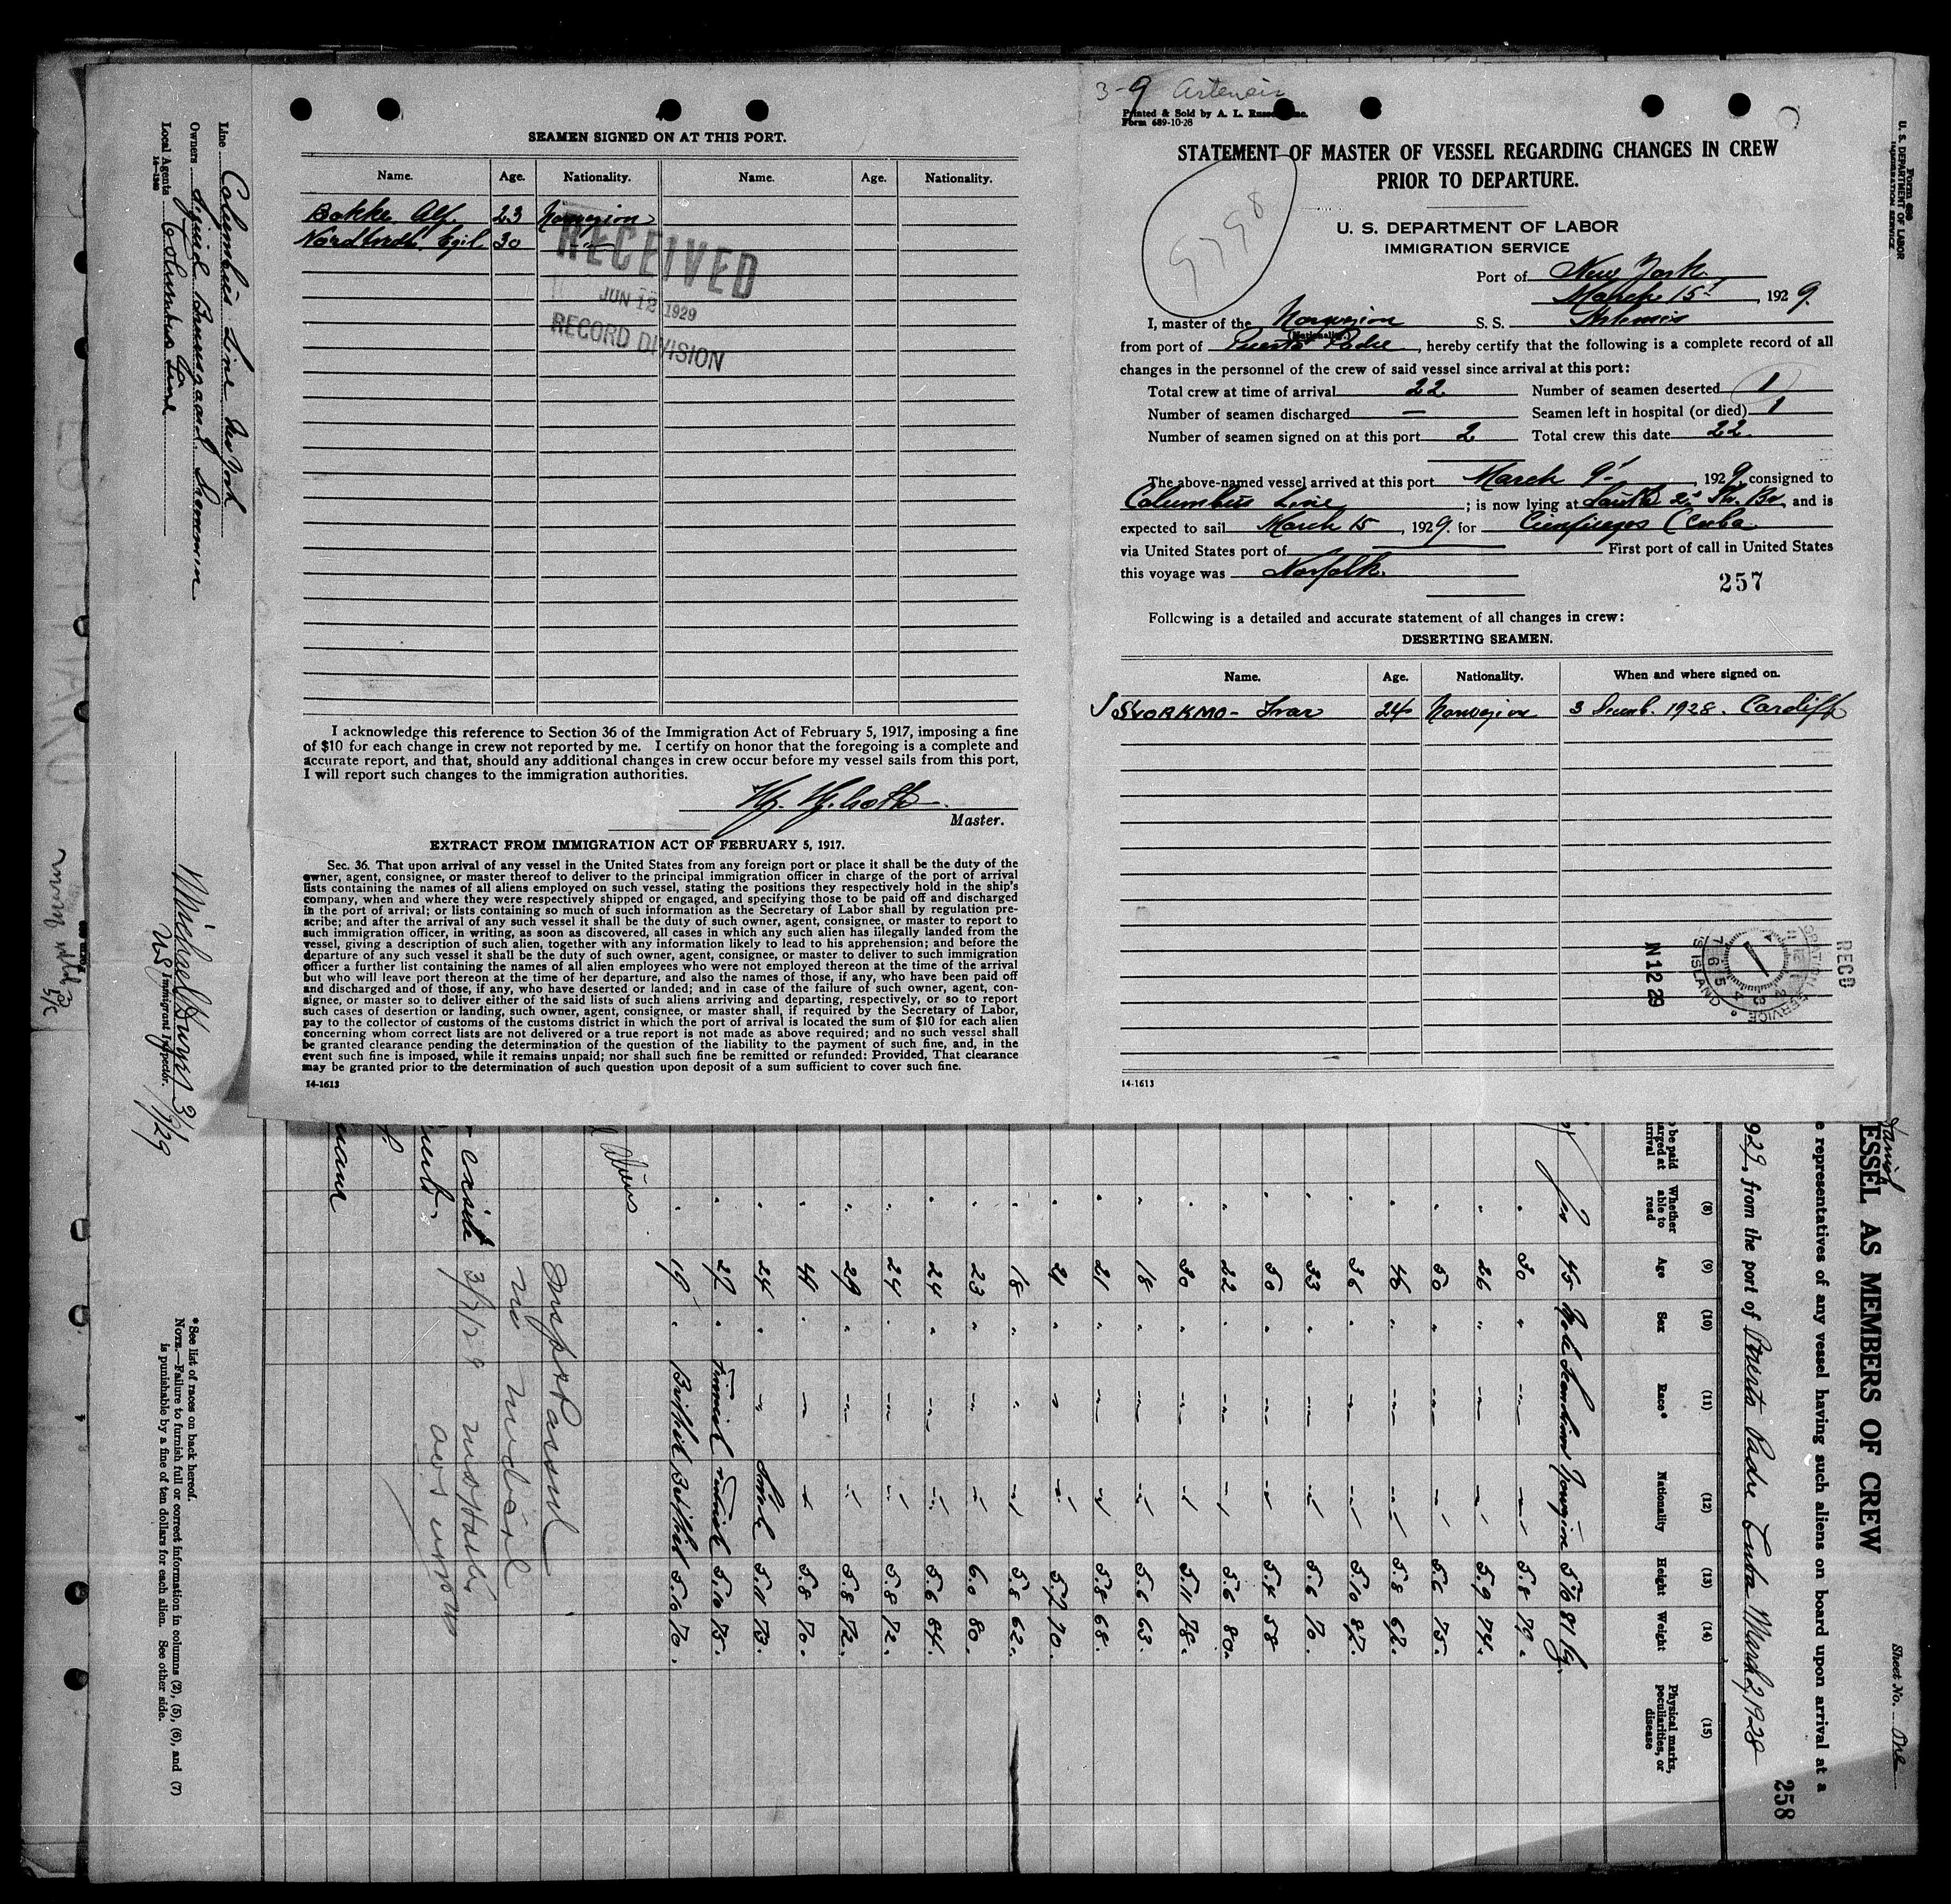 SEAMEN SIGNED ON AT THIS PORT.
Name. Age. Nationality. Name. Age. Nationality.
Bakke Alf. 23 Norwegian
Egil 30 -"-
RECEIVED
JUN 12 1929
RECORD DIVISION
I acknowledge this reference to Section 36 of the Immigration Act of February 5, 1917, imposing a fine
of $10 for each change in crew not reported by me. I certify on honor that the foregoing is a complete and
accurate report, and that, should any additional changes in crew occur before my vessel sails from this port,
I will report such changes to the immigration authorities.
Master.
EXTRACT FROM IMMIGRATION ACT OF FEBRUARY 5, 1917.
Sec. 36. That upon arrival of any vessel in the United States from any foreign port or place it shall be the duty of the
owner, agent, consignee, or master thereof to deliver to the principal immigration officer in charge of the port of arrival
lists containing the names of all aliens employed on such vessel, stating the positions they respectively hold in the ship's
company, when and where they were respectively shipped or engaged, and specifying those to be paid off and discharged
in the port of arrival; or lists containing so much of such information as the Secretary of Labor shall by regulation pre-
scribe; and after the arrival of any such vessel it shall be the duty of such owner, agent, consignee, or master to report to
such immigration officer, in writing, as soon as discovered, all cases in which any such alien has illegally landed from the
vessel, giving a description of such alien, together with any information likely to lead to his apprehension; and before the
departure of any such vessel it shall be the duty of such owner, agent, consignee, or master to deliver to such immigration
officer a further list containing the names of all alien employees who were not employed thereon at the time of the arrival
but who will leave port thereon at the time of her departure, and also the names of those, if any, who have been paid off
and discharged and of those, if any, who have deserted or landed; and in case of the failure of such owner, agent, con-
signee, or master so to deliver either of the said lists of such aliens arriving and departing, respectively, or so to report
such cases of desertion or landing, such owner, agent, consignee, or master shall, if required by the Secretary of Labor,
pay to the collector of customs of the customs district in which the port of arrival is located the sum of $10 for each alien
concerning whom correct lists are not delivered or a true report is not made as above required; and no such vessel shall
be granted clearance pending the determination of the question of the liability to the payment of such fine, and, in the
event such fine is imposed, while it remains unpaid; nor shall such fine be remitted or refunded: Provided, That clearance
may be granted prior to the determination of such question upon deposit of a sum sufficient to cover such fine.
14-1613
3-9 Artemis
Printed & Sold by A. L. Russell, Inc.
Form 689-10-28
STATEMENT OF MASTER OF VESSEL REGARDING CHANGES IN CREW
PRIOR TO DEPARTURE.
U. S. DEPARTMENT OF LABOR
IMMIGRATION SERVICE
Port of New York
March 15', 1929.
I, master of the Norwegian S. S. Artemis
(Nationality.)
from port of Puerto Padre, hereby certify that the following is a complete record of all
changes in the personnel of the crew of said vessel since arrival at this port:
Total crew at time of arrival 22 Number of seamen deserted 1
Number of seamen discharged — Seamen left in hospital (or died) 1
Number of seamen signed on at this port 2 Total crew this date 22.
The above-named vessel arrived at this port March 9', 1929, consigned to
Columbus Line; is now lying at South 2' St. Br, and is
expected to sail March 15, 1929. for Cienfuegos (Cuba
via United States port of First port of call in United States
this voyage was Norfolk.
257
Following is a detailed and accurate statement of all changes in crew:
DESERTING SEAMEN.
Name. Age. Nationality. When and where signed on.
STORKMO - Ivar 24 Norwegian 3 Decemb. 1928. Cardiff
RECD
N 12 29
14-1613
Form 689
U. S. DEPARTMENT OF LABOR
IMMIGRATION SERVICE
Line Columbus Line New York
Owners
Local Agents Columbus Line
14-1240
Immigrant Inspector.
3/9/29
Sheet No. One
ESSEL AS MEMBERS OF CREW
e representatives of any vessel having such aliens on board upon arrival at a
929, from the port of Puerto Padre Cuba March 2, 1928
258
(8) (9) (10) (11) (12) (13) (14) (15)
Whether able to read Age Sex Race* Nationality Height Weight Physical marks, peculiarities, or disease
yes 45 Male Norwegian 5.10 81 kg.
30 5.8 79.
26 5.9 74.
50 5.6 75.
46 5.8 62.
36 5.10 87.
33 5.6 70.
50 5.4 58.
22 5.6 80.
30 5.11 78.
18 5.6 63.
21 5.8 68.
21 5.7 70.
18 5.8 62.
23 6.0 80.
24 5.6 64.
24 5.8 72.
29 5.8 72.
5.8 70.
24 5.11 73.
27 5.10 75.
19 British British 5.10 70.
*See list of races on back hereof.
NOTE.—Failure to furnish full or correct information in columns (2), (5), (6), and (7)
is punishable by a fine of ten dollars for each alien. See other side.